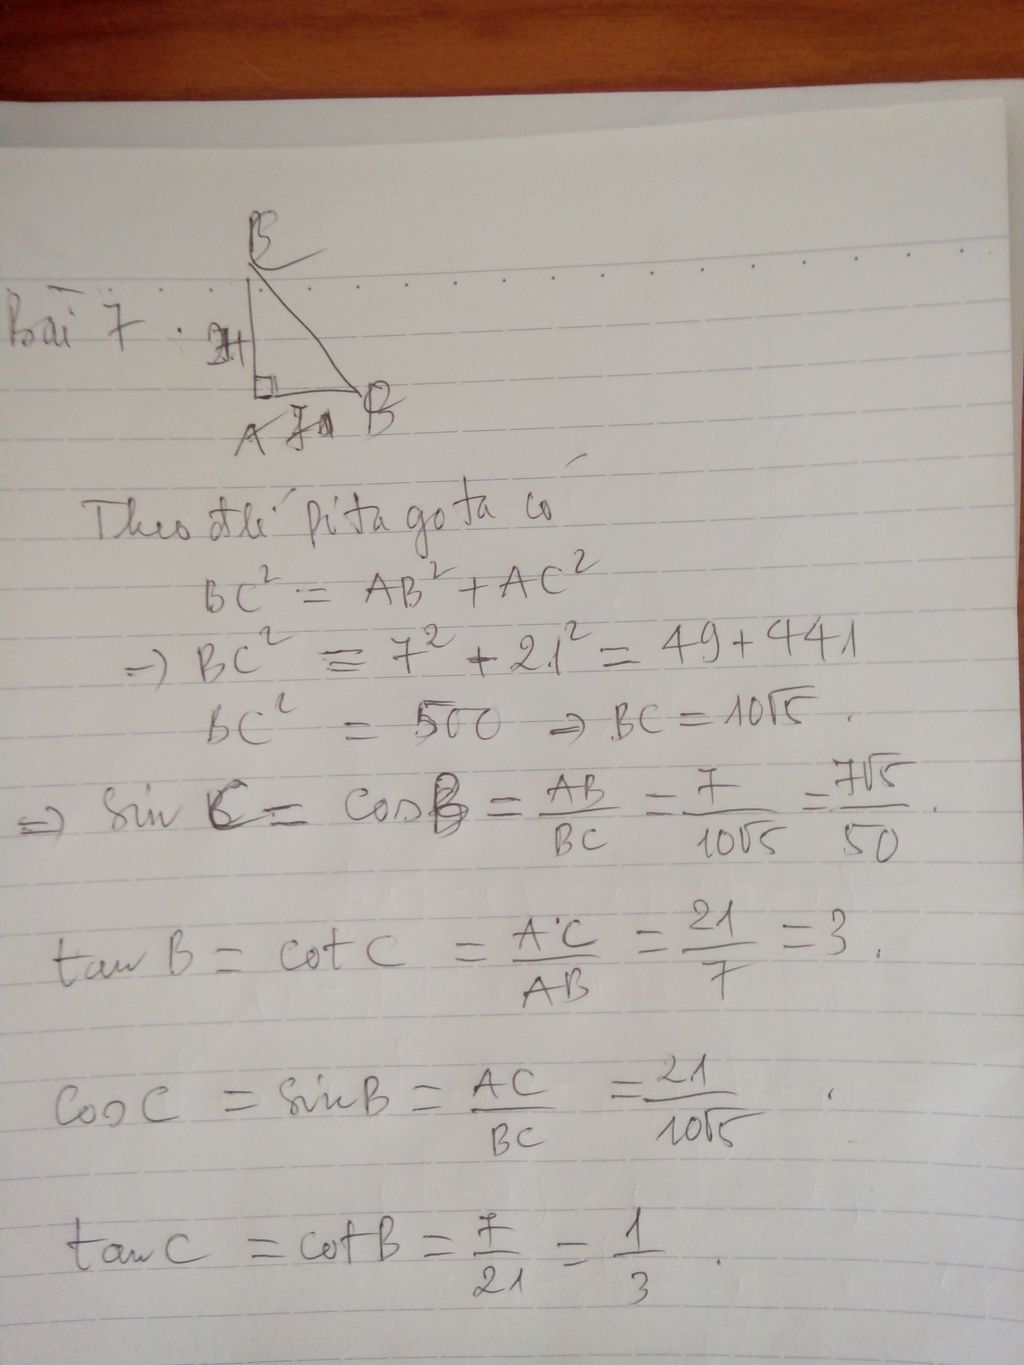 B
Bài 7.
A
B
Theo đlí pitago ta có
BC² = AB² + AC²
=> BC² = 7² + 21² = 49 + 441
BC² = 500 => BC = 10√5.
=> Sin C = cos B = AB/BC = 7/10√5 = 7√5/50.
tan B = cot C = AC/AB = 21/7 = 3.
Cos C = sin B = AC/BC = 21/10√5.
tan C = cot B = 7/21 = 1/3.